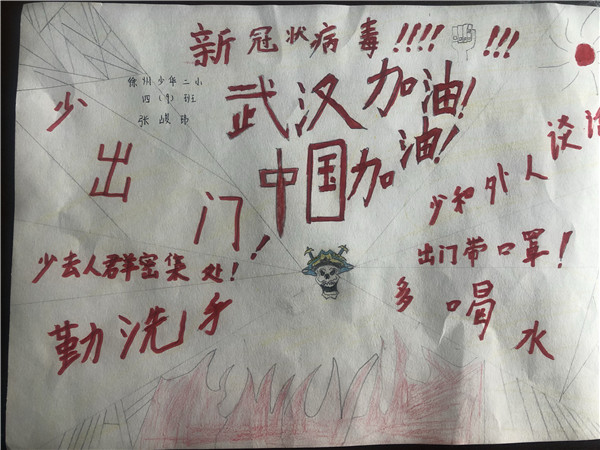 新冠状病毒!!!! !!!
徐州少华二小
四(9)班
武汉加油!
中国加油!
少出门!
少和外人谈话
少去人群密集处!
出门带口罩!
勤洗手
多喝水